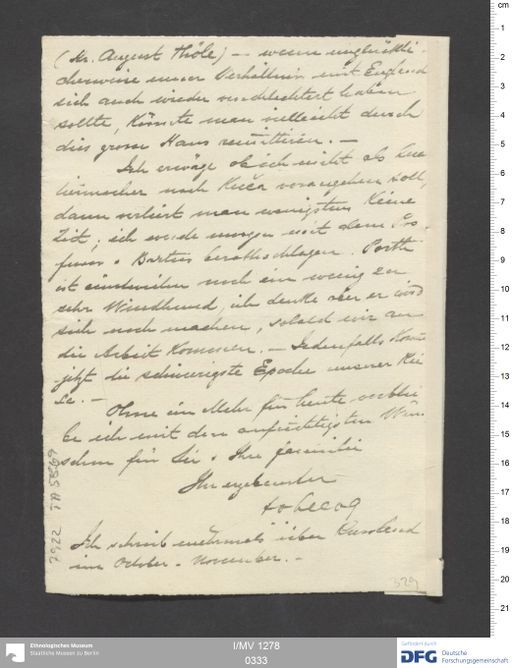 (Hr. August Thöle) — wenn unglückli-
cherweise unser Verhältnis mit England
sich auch wieder verschlechtert haben
sollte, könnte man vielleicht durch
dies grosse Haus remittieren. —
Ich erwäge ob ich nicht als
nach Kuča vorangehen soll,
dann verliert man wenigstens keine
Zeit; ich werde morgen mit dem Pro-
fessor & Bartus berathschlagen. Porth
ist einstweilen noch ein wenig zu
sehr Windhund, ich denke aber er wird
sich noch machen, sobald wir an
die Arbeit kommen. — Jedenfalls kommt
jetzt die schwierigste Epoche unserer Rei-
se. —
Ohne ein Mehr für heute verblei-
be ich mit den aufrichtigsten Wün-
schen für Sie & Ihre Familie
Ihr ergebenster
v. Lecoq
Ich schrieb mehrmals über Russland
im October - November. —
7922 TA 5869
329
cm
1
2
3
4
5
6
7
8
9
10
11
12
13
14
15
16
17
18
19
20
21
Ethnologisches Museum
Staatliche Museen zu Berlin
I/MV 1278
0333
Gefördert durch
DFG Deutsche
Forschungsgemeinschaft